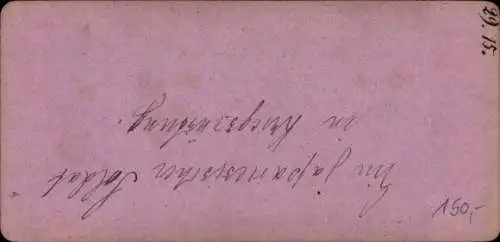 Ein japanesischer Soldat
in Kriegsrüstung.
29.15.
150,-